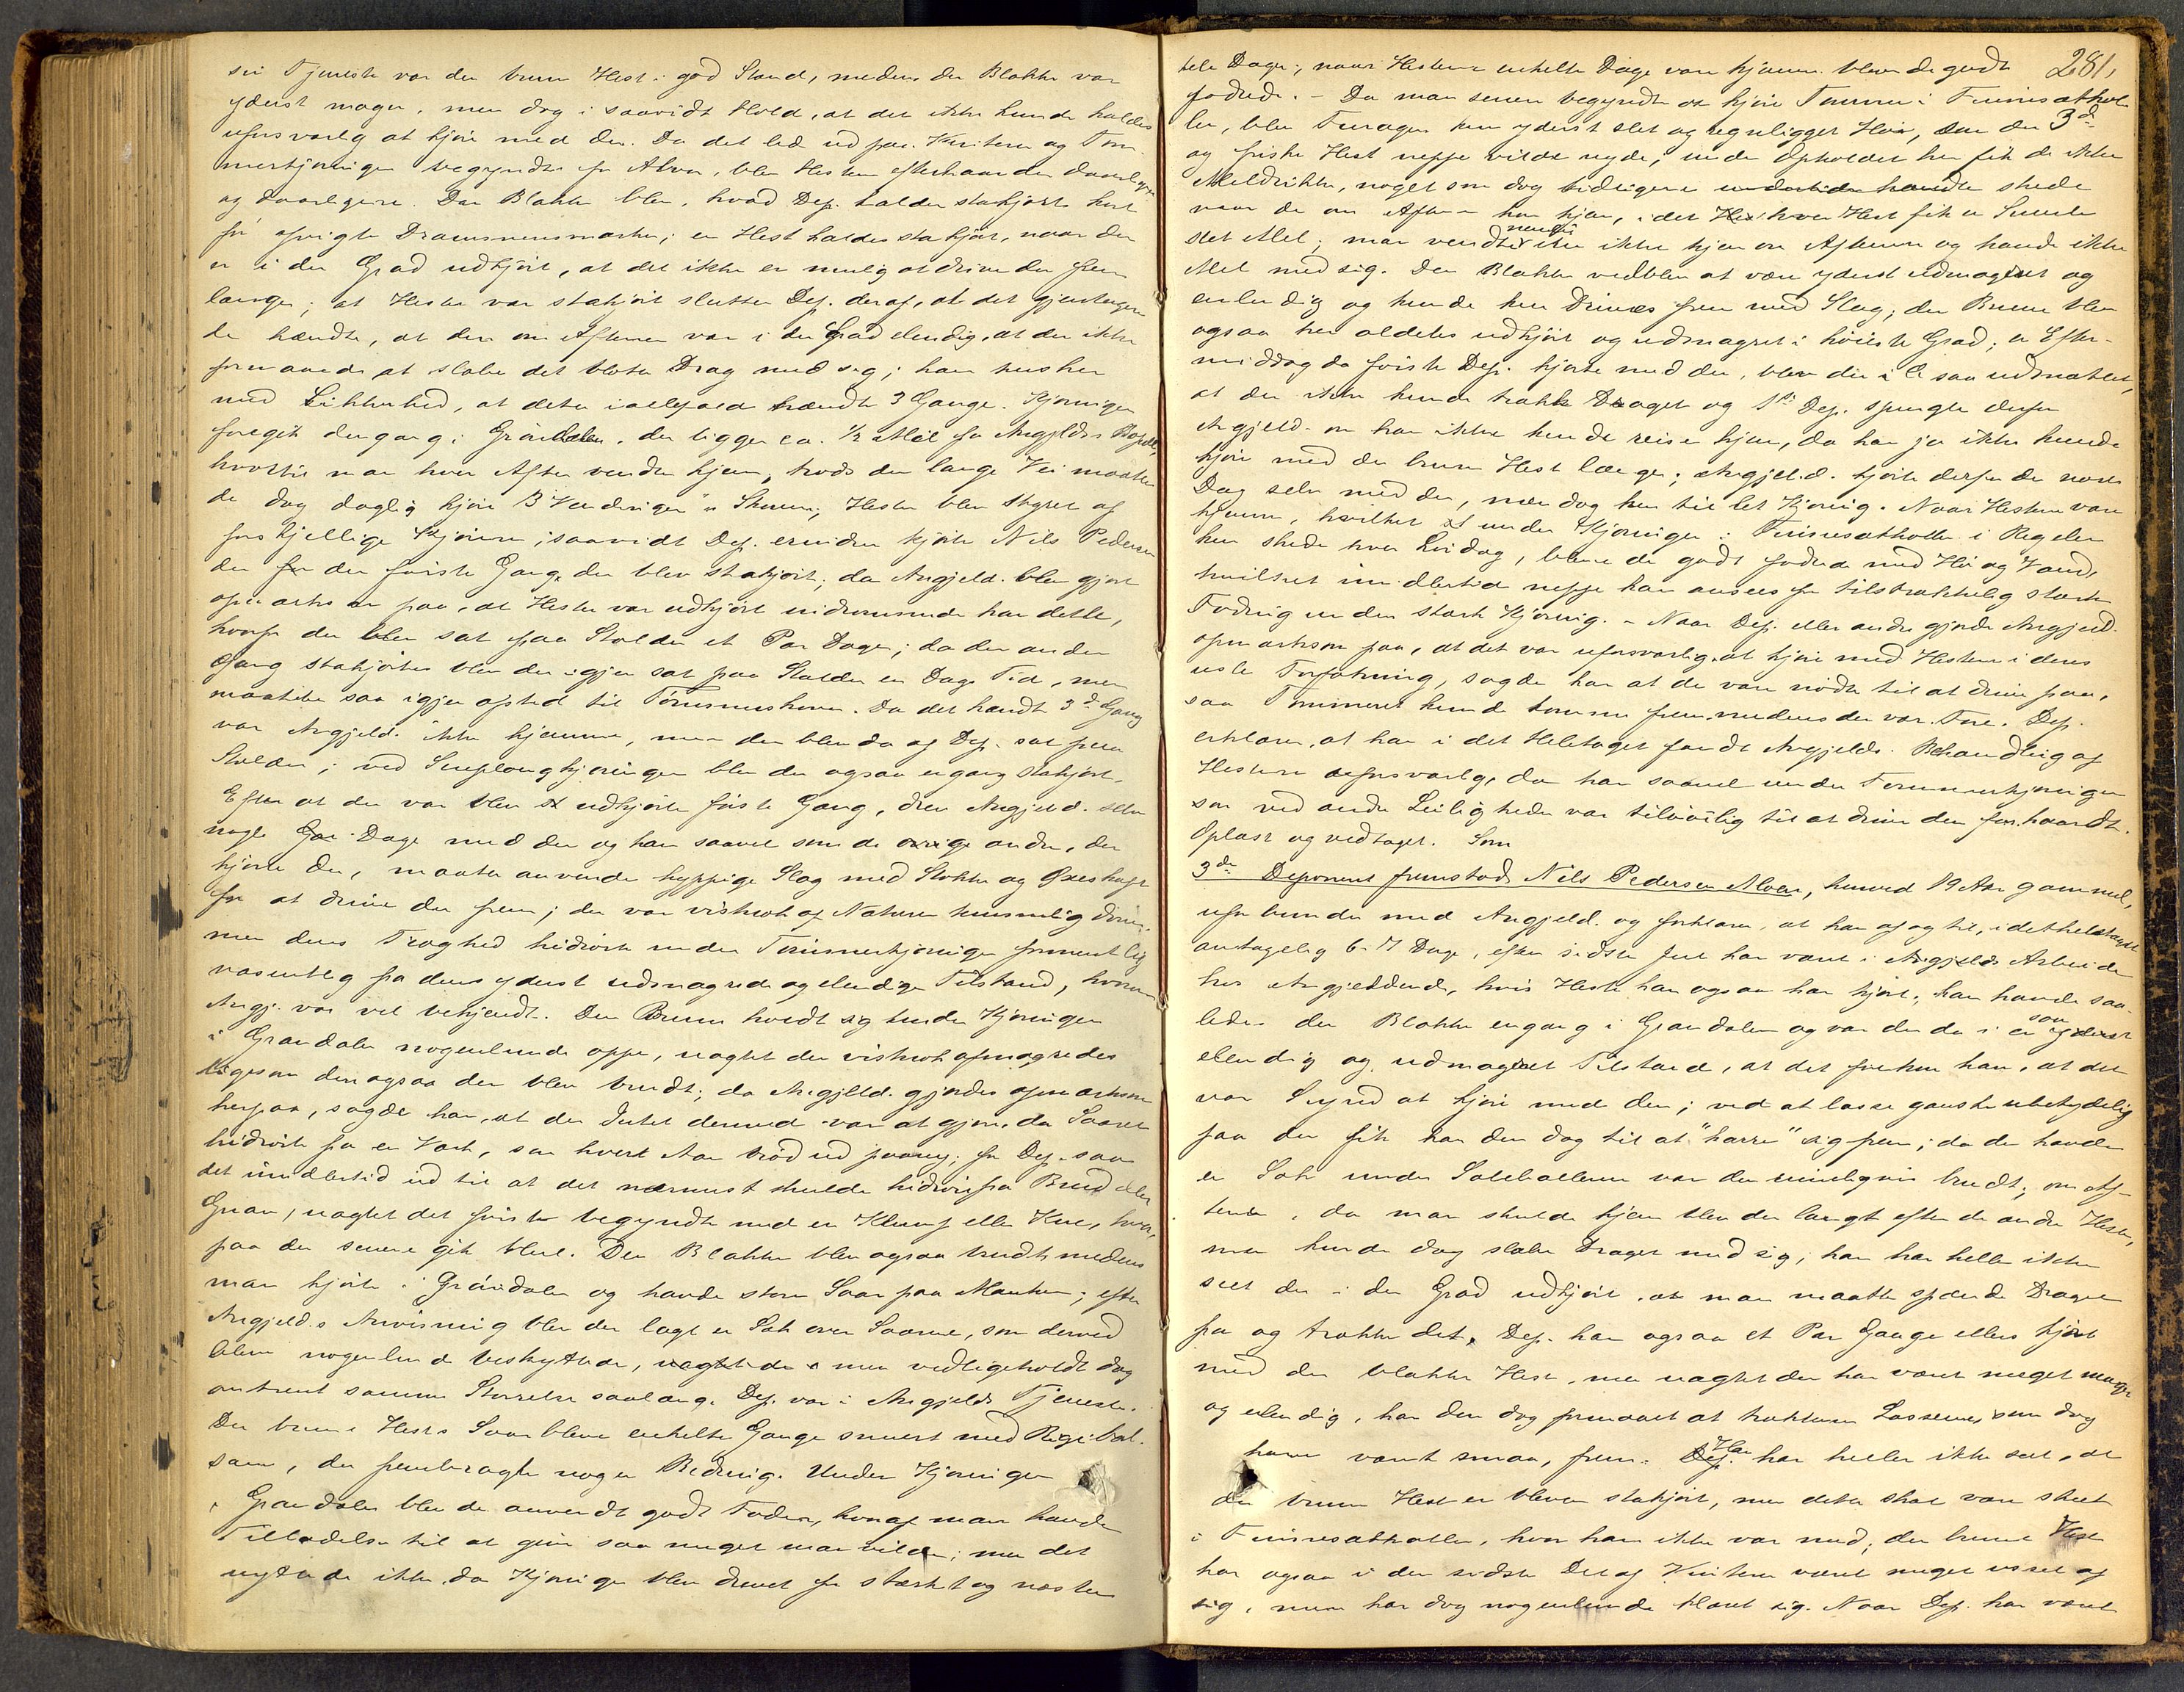 sin Tjeneste var den brune Hest i god Stand, medens den Blakke var
yderst mager, men dog i saavidt Hold, at det ikke kunde kaldes
uforsvarlig at kjøre med den. Da det led ud paa Vinteren og Tøm-
merkjøringen begyndte for Alvor, blev Hestene efterhaanden daarligere
og daarligere. Den Blakke blev, hvad Dep. kalder stakjørt
en Hest kaldes stakjørt, naar den
er i den Grad udkjørt, at det ikke er mulig at drive den frem
længer; at Hesten var stakjørt slutter Dep. deraf, at det gjentagen-
de hændte, at den om Aftenen var i den Grad elendig, at den ikke
formaaede at slæbe det blotte Drag med sig; han husker
med Sikkerhed, at dette ialfald hændte 3 Gange. Kjøringen
foregik dengang i Grändalen, der ligger ca. 1/2 Mil fra Angjeldes Bopæl,
hvortil man hver Aften vendte hjem, trods den lange Vei maatte
de dog daglig kjøre 3 "Vendinger" Hesten blev styret af
forskjellige Kjørere; saavidt Dep. erindrer kjørte Nils Pedersen
den for den første Gang, den blev stakjørt; da Angjeld. blev gjort
opmærksom paa, at Hesten var udkjørt indrømmede han dette,
hvorfor den blev sat paa Stalden et Par Dage; da den anden
Gang stakjørtes blev den igjen sat paa Stalden en Dags Tid, men
maatte saa igjen afsted til Tømmerskoven. Da det hændte 3d Gang
var Angjeld. ikke hjemme, men den blev da af Dep. sat paa
Stalden; ved Sneplougkjøringen blev den ogsaa engang stakjørt.
Efter at den var blevet udkjørt første Gang, drev Angjeld. selv
nogle Dage med den og han saavel som de andre, der
kjørte den, maatte anvende hyppige Slag med Stokke og Øxeskaft
for at drive den frem; den var vistnok af Naturen temmelig doven,
men dens Træghed hidrørte under Tømmerkjøringen formentlig
væsentlig fra dens yderst udmagrede og elendige Tilstand, hvormed
Angj. var vel bekjendt. Den Brune holdt sig under Kjøringen
i Grandalen nogenlunde oppe, uagtet den vistnok afmagredes
ligesom den ogsaa der blev brudt; da Angjeld. gjordes opmærksom
herpaa, sagde han, at der Intet dermed var at gjøre, da Saaret
hidrørte fra en Vært, som hvert Aar brød ud paany; for Dep. saa
det imidlertid ud til at det nærmest skulde hidrøre fra Brud eller
Gnav, uagtet det først begyndte med en Klump eller Kul, hvor-
paa der senere gik Hul. Den Blakke blev ogsaa brudt medens
man kjørte i Grándalen og havde store Saar paa Manken; efter
Angjeld.s Anvisning blev der lagt en Sæk over Saarene, som derved
bleve nogenlunde beskyttede, men vedligeholdt dog
omtrent samme Størrelse saalænge Dep. var i Angjelds Tjeneste.
Den brune Hests Saar bleve enkelte Gange smurt med Rigabal-
sam, der frembragte nogen Bedring. Under Kjøringen
i Grandalen blev der anvendt godt Foder, hvoraf man havde
Tilladelse til at give saa meget man vilde; men det
nyttede ikke, da Kjøringen blev drevet for stærkt og næsten
281,
hele Dage; naar Hestene enkelte Dage vare hjemme bleve de godt
fodrede. – Da man senere begyndte at kjøre Tømmer i Finnesæthol-
len, blev Furagen kun yderst slet og regnligget Høi, som den 3de
og friske Hest neppe vilde nyde; under Opholdet her fik de ikke
Meldrikke, noget som dog tidligere skede
naar de om Aftenen kom hjem, idet hver Hest fik en Smule
slet Mel; man vendte nemlig ikke hjem om Aftenen og havde ikke
Mel med sig. Den Blakke vedblev at være yderst udmagret og
elendig og kunde kun drives frem med Slag; den Brune blev
ogsaa her aldeles udkjørt og udmagret i høieste Grad; en Efter-
middag da første Dep. kjørte med den, blev den saa udmattet,
at den ikke kunde trække Draget og 1ste Dep. spurgte derfor
Angjeld. om han ikke kunde reise hjem, da han jo ikke kunde
kjøre med den brune Hest længer; Angjeld. kjørte derfor den næste
Dag selv med den, men dog kun til let Kjøring. Naar Hestene vare
hjemme, hvilket under Kjøringen i Finnesæthollen i Regelen
kun skede hver Søndag, bleve de godt fodrede med Hø og Vand,
hvilket imidlertid neppe kan ansees for tilstrækkelig stærk
Fodring under stærk Kjøring. – Naar Dep. eller andre gjorde Angjeld.
opmærksom paa, at det var uforsvarlig at kjøre med Hestene i deres
usle Forfatning, sagde han at de vare nødte til at drive paa,
saa Tømmeret kunde komme frem medens der var Føre. Dep.
erklærer, at han i det Heletaget fandt Angjelds. Behandling af
Hestene uforsvarlig, da han saavel under Tømmerkjøringen
som ved andre Leiligheder var tilbøielig til at drive dem for haardt.
Oplæst og vedtaget. Som
3de Deponent fremstod Nils Pedersen Moen, henved 19 Aar gammel,
uforbunden med Angjeld. og forklarer, at han af og til, i det heletaget
antagelig 6-7 Dage, efter sidste Jul har været i Angjelds Arbeide
hos Angjeldende, hvis Heste han ogsaa har kjørt; han havde saa-
ledes den Blakke engang i Grandalen og var den da i en saa
elendig og udmagret Tilstand, at det forekom ham, at det
var Synd at kjøre med den; ved at lasse ganske ubetydelig
paa den fik han den dog til at "harre" sig frem; da de havde
en Sæk under Selebollerne var den rimeligvis brudt; om Af-
tenen, da man skulde hjem blev den langt efter de andre Heste,
men kunde dog slæbe Draget med sig; han har heller ikke
seet den i den Grad udkjørt, at man maatte spænde Draget
fra og trække det. Dep. har ogsaa et Par Gange ellers kjørt
med den blakke Hest, men uagtet den har været meget mager
og elendig, har den dog formaaet at trække Lassene, som dog
have været smaa, frem. Han har heller ikke seet, at
den brune Hest er bleven stakjørt, men dette skal være skeet
i Finnesæthollen, hvor han ikke var med; den brune Hest
har ogsaa i den sidste Del af Vinteren været meget ussel af
sig, men har dog nogenlunde klaret sig. Naar Dep. har været